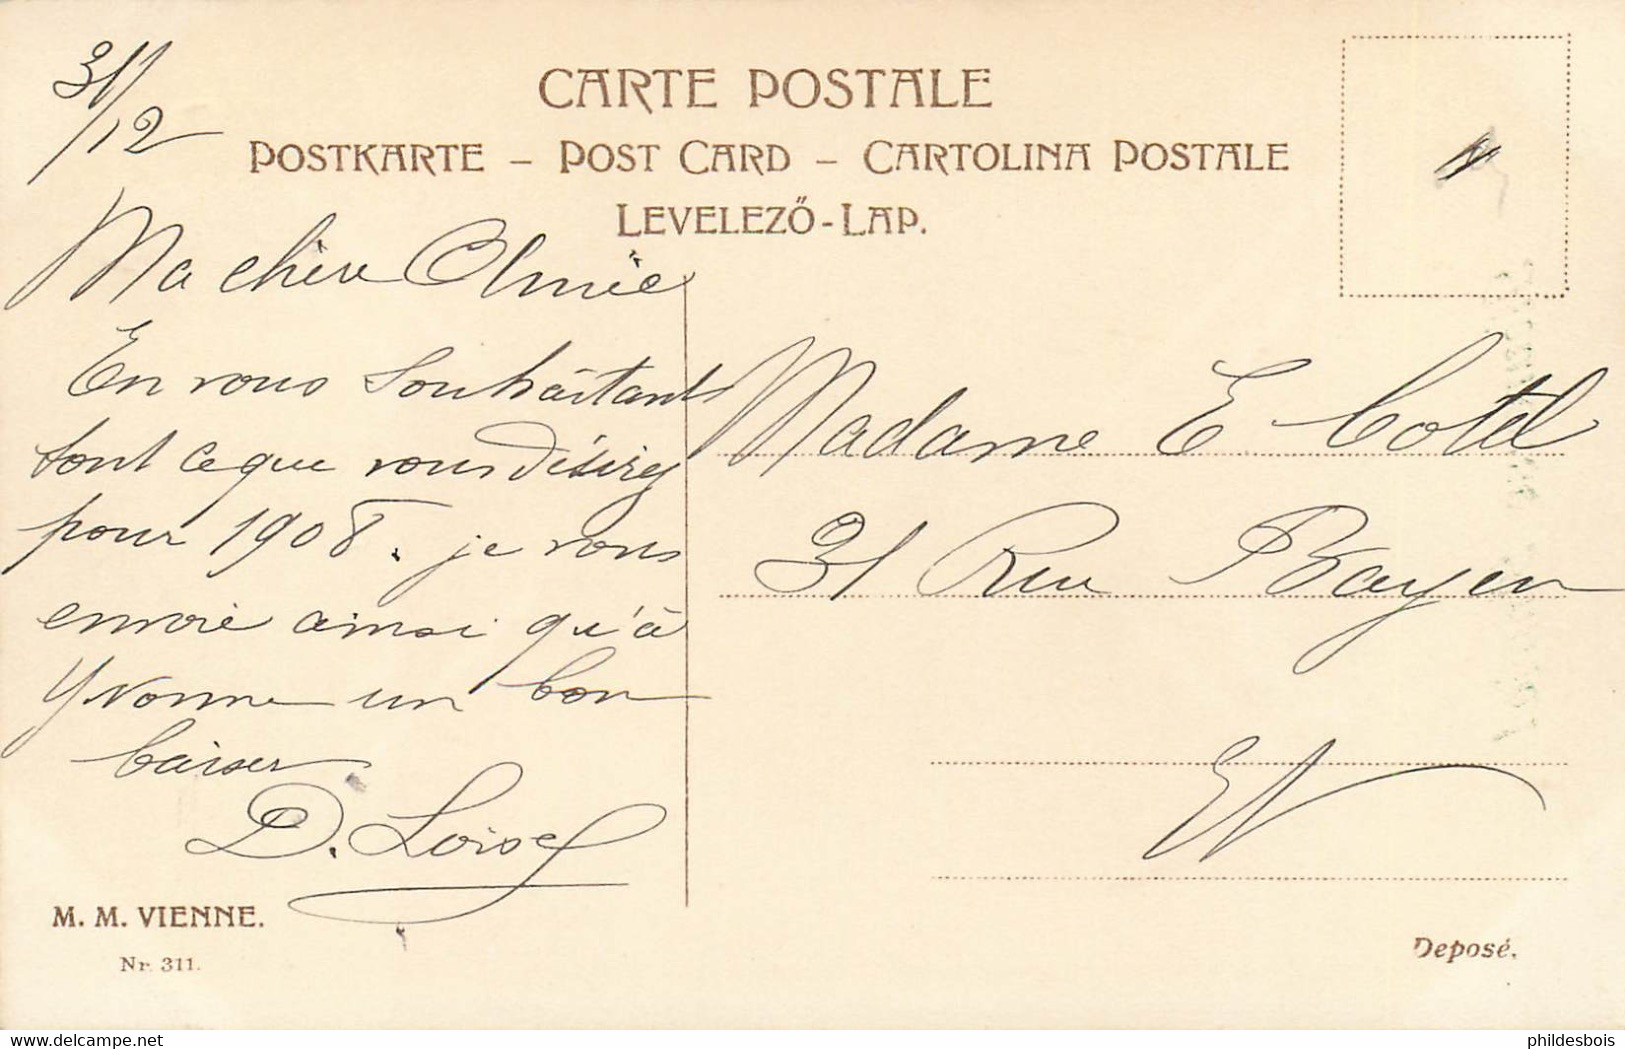 31/12
CARTE POSTALE
POSTKARTE – POST CARD – CARTOLINA POSTALE
LEVELEZŐ-LAP.
Ma chère Amie
En vous Souhaitant
tout ce que vous désirez
pour 1908. je vous
envoie ainsi qu'à
Yvonne un bon
baiser
D. Loisel
M. M. VIENNE.
Nr. 311.
Madame E Cotel
31 Rue Bayen
EV
Deposé.
phildesbois